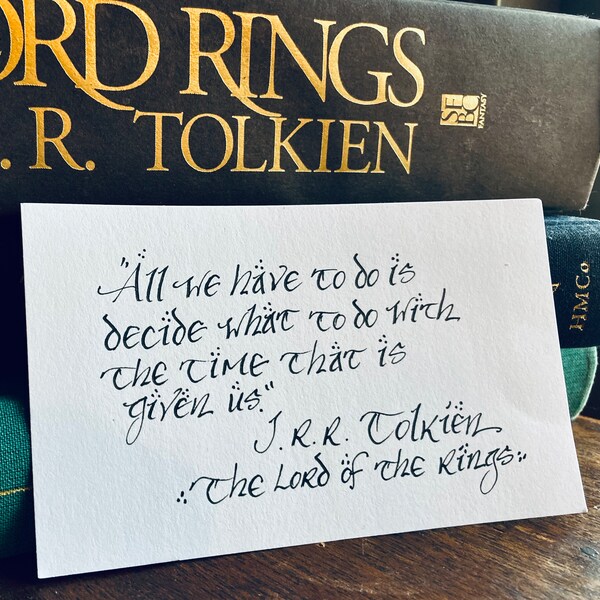 ORD RINGS
.R. TOLKIEN
SFBC
FANTASY
HMCo.
"All we have to do is
decide what to do with
the time that is
given us."
J.R.R. Tolkien
The Lord of the Rings